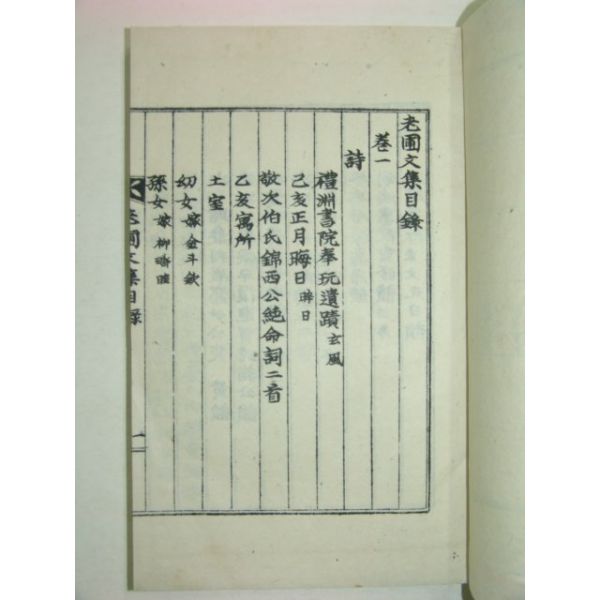 老圃文集目錄
卷一
詩
禮淵書院奉玩遺蹟 玄風
己亥正月晦日 晬日
敬次伯氏錦西公絶命詞二首
乙亥寓所
土室
幼女嫁 金斗欽
孫女嫁 柳
老圃文集目錄
一